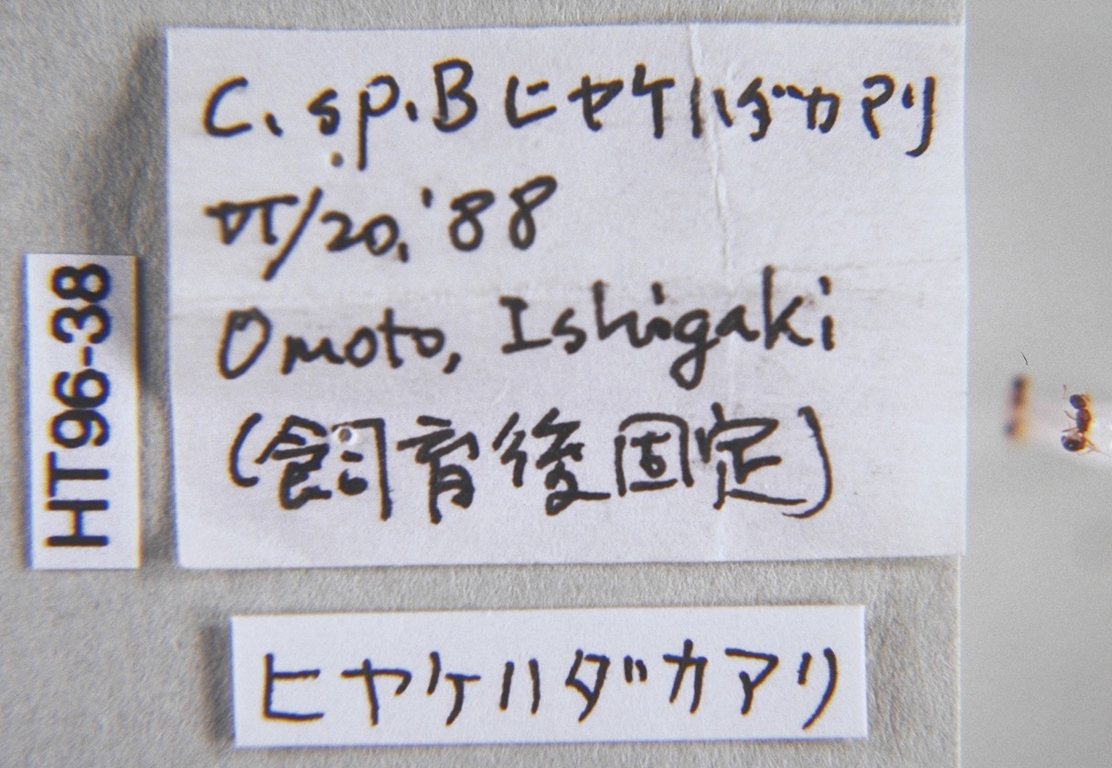 C. sp. B ヒヤケハダカアリ
VI/20, '88
Omoto, Ishigaki
(飼育後固定)
HT96-38
ヒヤケハダカアリ